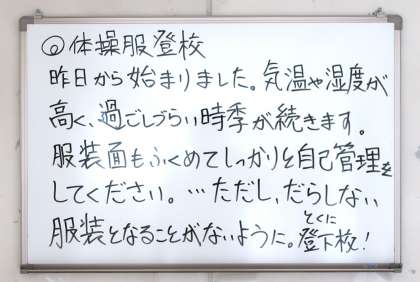 ◎体操服登校
昨日から始まりました。気温や湿度が
高く、過ごしづらい時季が続きます。
服装面もふくめてしっかりと自己管理を
してください。…ただし、だらしない
服装となることがないように。とくに登下校！